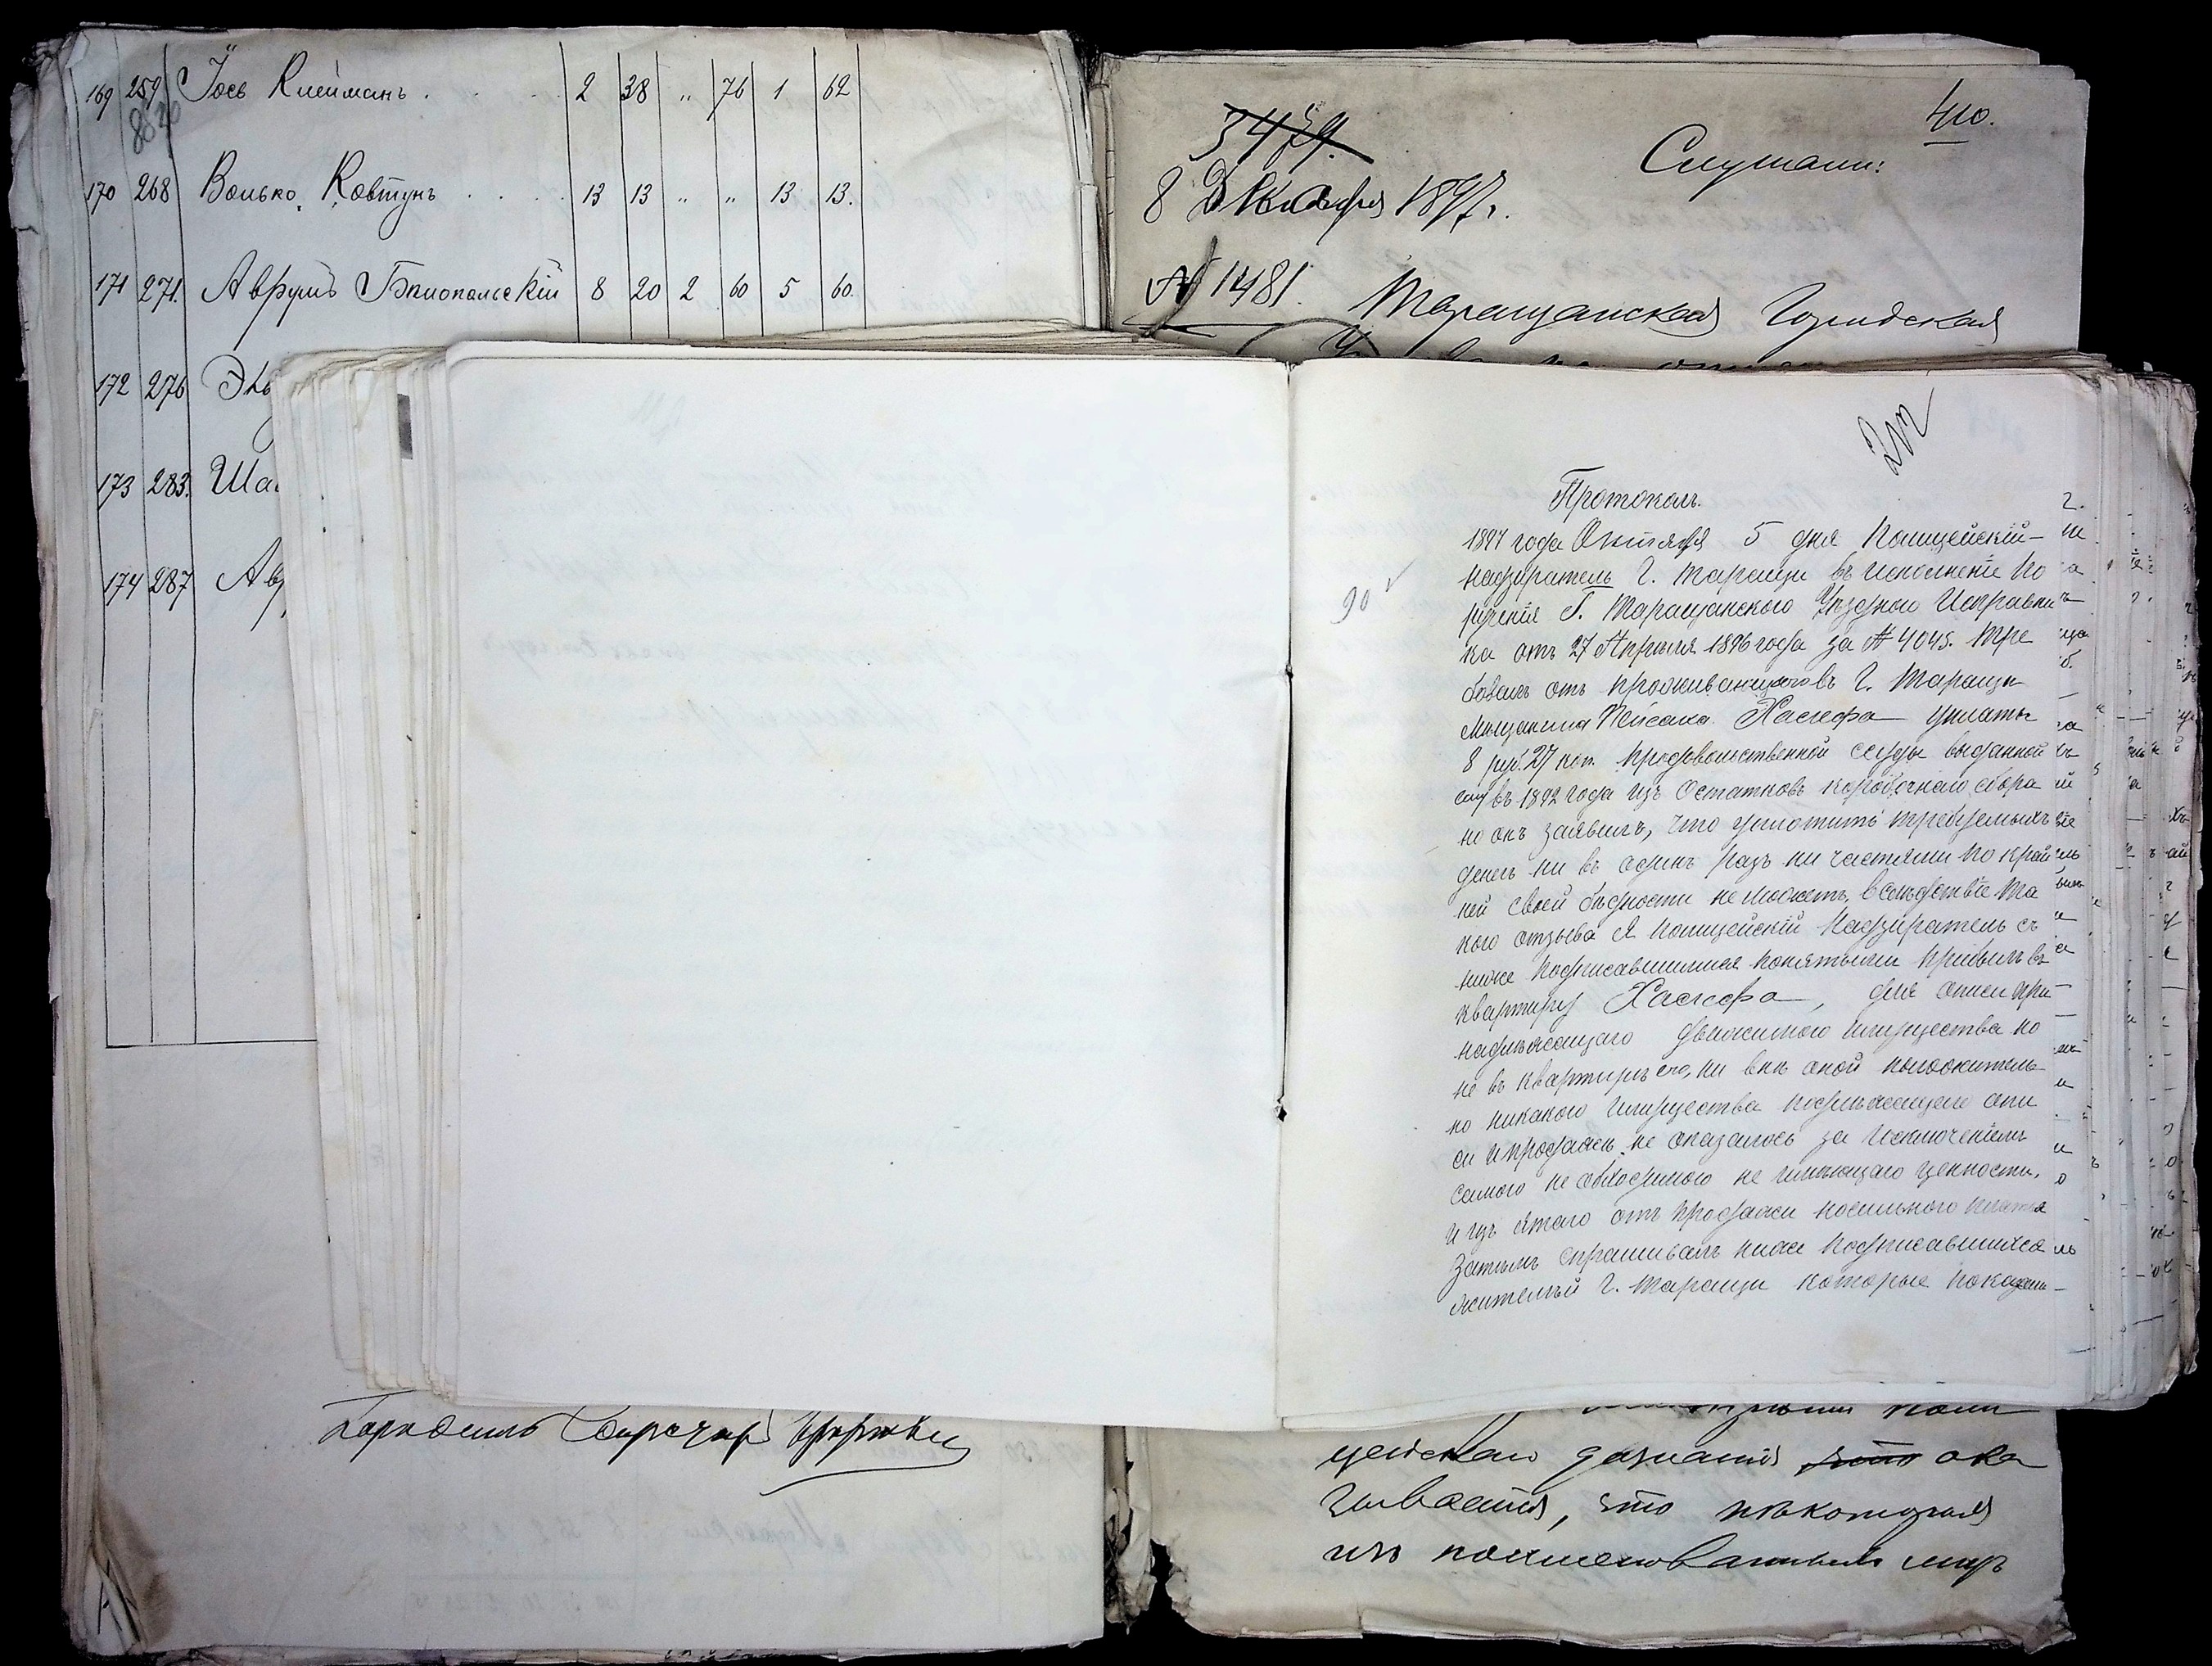 169 259 Іось Клейманъ 2 38 " 76 1 62
8020
170 268 Волько Ковтунъ 13 13 " " 13 13.
171 271. Аврумъ Бѣлопольскій 8 20 2 60 5 60.
172 276 Эль
173 283. Ша
174 287 Ав
410.
3479.
Слушали:
8 Декабря 1897 г.
№ 1481. Таращанская Городская
Протоколъ.
1897 года Октября 5 дня Полицейскій
90 надзиратель Г. Таращи въ исполненіе по
рученія Г. Таращанского Уѣздного Исправни
ка отъ 27 Апрѣля 1896 года за № 4045. тре
бовалъ отъ проживающаго въ Г. Таращи
мѣщанина Пейсаха Хаскефа уплаты
8 руб. 27 коп. продовольственной ссуды выданной
ему въ 1892 года изъ Остатковъ коробочнаго сбора
но онъ заявилъ, что уплотить требуемыхъ
денегъ ни въ одинъ разъ ни частями по край
ней своей бѣдности не можетъ, вслѣдствіе та
кого отзыва Я Полицейскій Надзиратель съ
ниже подписавшимися понятыми прибылъ въ
квартиру Хаскефа, для описи при
надлежащаго движимого имущества но
не въ квартирѣ его, ни внѣ оной положитель
но никакого имущества подлежащаго опи
си и продажѣ не оказалось за исключеніемъ
самого не обходимого не имѣющаго ценности,
и изъ ятаго отъ продажи носильного платья
Затѣмъ спрашивалъ ниже подписавшихся
жителей Г. Таращи которые показали
цейскаго дознанія что ока
зывается, что нѣкоторыя
изъ поименованныхъ лицъ